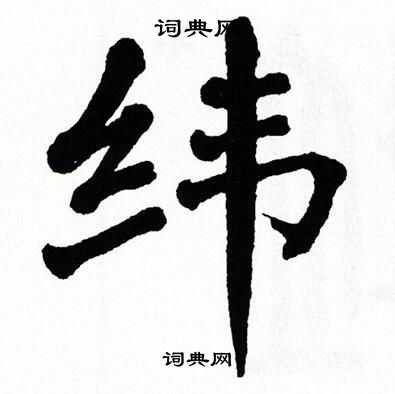 词典网
纬
词典网